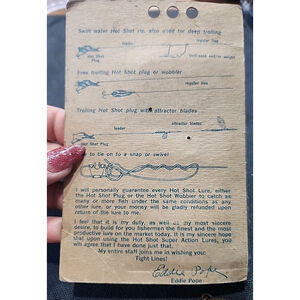 Swift water Hot Shot rig, also used for deep trolling
leader
regular line
Hot Shot
Plug
Free trolling Hot Shot plug or wobbler
regular line
Trolling Hot Shot plug with attractor blades
attractor blades
leader
Hot Shot Plug
to tie on to a snap or swivel
I will personally guarantee every Hot Shot Lure, either
the Hot Shot Plug or the Hot Shot Wobbler to catch as
many or more fish under the same conditions as any
other lure, or your money will be gladly refunded upon
return of the lure to me.
I feel that it is my duty, as well as my most sincere
desire, to build for you fishermen the finest and the most
productive lure on the market today. It is my sincere hope
that upon using the Hot Shot Super Action Lures, you
will agree that I have done just that.
My entire staff joins me in wishing you:
Tight Lines!
Eddie Pope
Eddie Pope